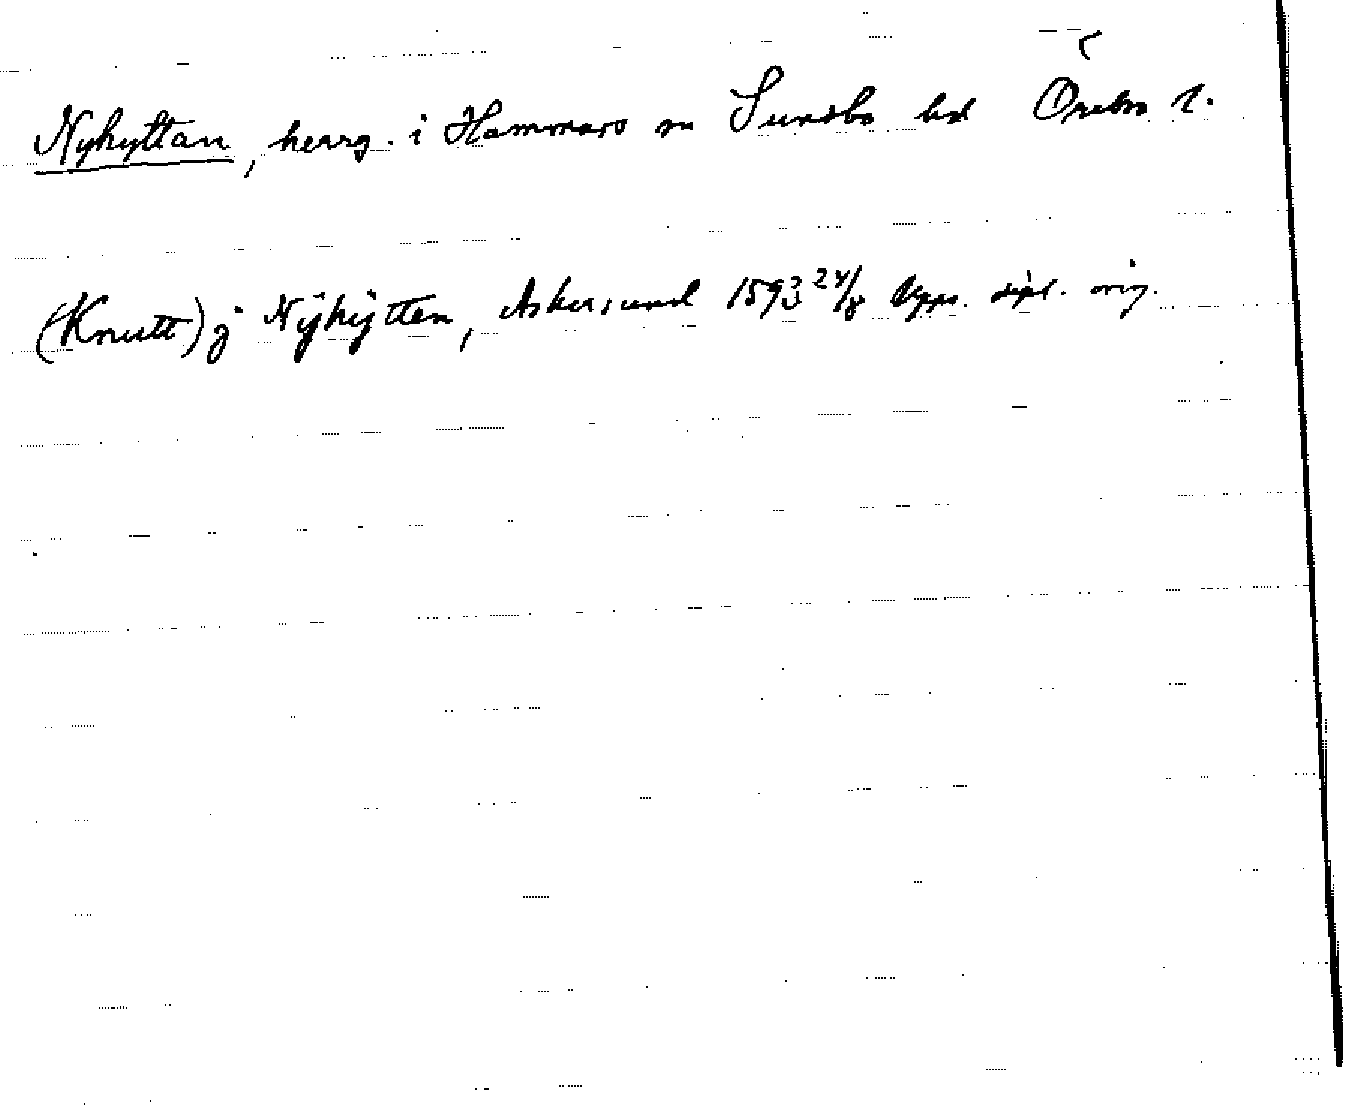 Nyhyttan, herrg. i Hammars sn Sundbo hd Örebro l.
(Knutt) j Nÿhÿtten, Askersund 1593 24/8 Upps. dipl. orig.